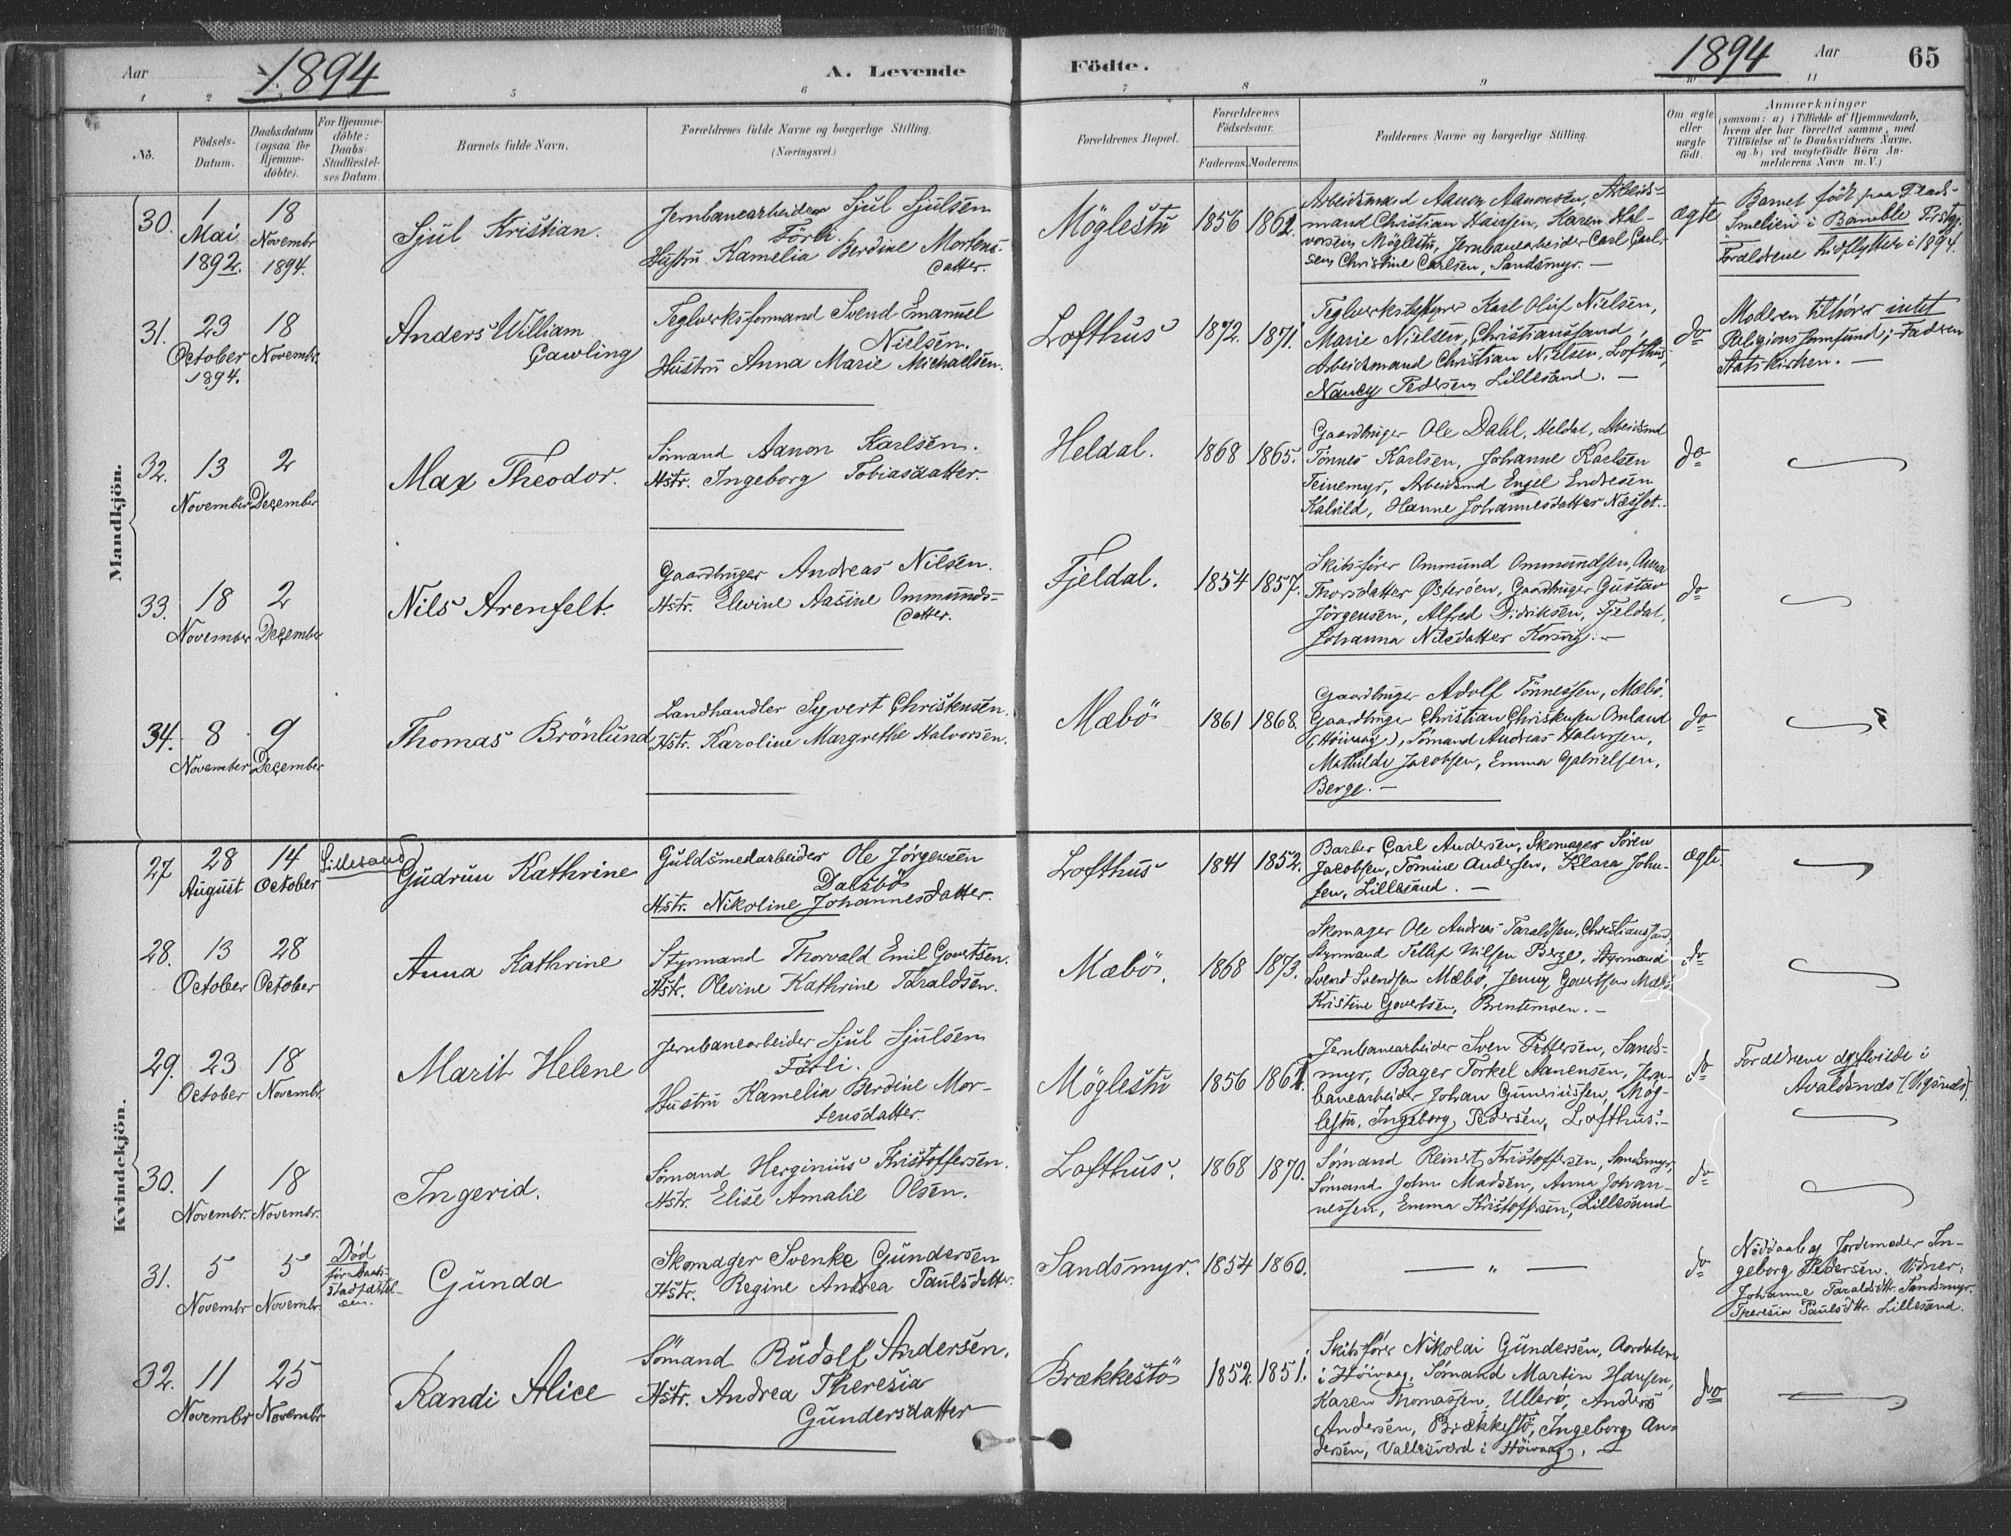 Aar 1894 A. Levende Födte. 1894 Aar 65
1 2 5 6 7 8 9 10 11
No.
Födsels-
Datum.
Daabsdatum
(ogsaa for
Hjemme-
döbte).
For Hjemme-
döbte:
Daabs-
Stadfæstel-
ses Datum.
Barnets fulde Navn.
Forældrenes fulde Navne og borgerlige Stilling.
(Næringsvei.)
Forældrenes Bopæl.
Forældrenes
Födselsaar.
Faderens. Moderens.
Faddernes Navne og borgerlige Stilling.
Om ægte
eller
uægte
født.
Anmærkninger
(saasom: a) i Tilfælde af Hjemmedaab,
hvem der har forrettet samme, med
Tilföielse af to Daabsvidners Navne,
og b) ved uægtefödte Börn An-
melderens Navn m. V.)
Mandkjön.
30. 1 Mai 1892. 18 Novembr 1894.
Sjul Kristian.
Jernbanearbeider Sjul Sjulsen
Förli.
Hustru Kamelia Berdine Mortens-
datter.
Möglestu 1856 1862.
Arbeidsmand Aanon Aanonsen, Arbeids-
mand Christian Hansen, Karen Hal-
vorsen, Möglestu, Jernbanearbeider Carl Carl-
sen, Christine Carlsen, Sandsmyr. —
ægte
Barnet födt paa Plads.
i Bamble Præstegj.
Forældrene hidflyttede i 1894.
31. 23 October 1894. 18 Novembr.
Anders William
Gawling
Teglverksformand Svend Emanuel
Nielsen.
Hustru Anna Marie Michaelsen.
Lofthus 1872. 1871.
Teglverksbestyrer Karl Oluf Nielsen,
Marie Nielsen, Christianssand,
Arbeidsmand Christian Nielsen, Lofthus,
Nancy Pedersen, Lillesand. —
do
Moderen tilhører intet
Religions samfund; Faderen
Statskirken. —
32. 13 November 2 December
Max Theodor.
Sömand Aanon Karlsen.
Hstr. Ingeborg Tobiasdatter.
Heldal. 1868 1865.
Gaardbruger Ole Dahl, Heldal, Arbeidsmd
Tönnes Karlsen, Johanne Karlsen
Teinemyr, Arbeidsmd Engel Endresen
Kalvild, Hanne Johannesdatter Næsset.
do
33. 18 November 2 December
Nils Arenfelt.
Gaardbruger Andreas Nilsen.
Hstr. Elevine Aasine Ommunds-
datter.
Fjeldal. 1854 1857.
Skibsfører Ommund Ommundsen, Anna
Thorsdatter Østerøen, Gaardbruger Gustav
Jörgensen, Alfred Didriksen, Fjeldal,
Johanna Nilsdatter Korsvig. —
do
34. 8 November 9 December
Thomas Brönlund
Landhandler Syvert Christensen.
Hstr. Karoline Margrethe Halvorsen.
Mæbö 1861 1868.
Gaardbruger Adolf Tönnessen, Mæbö.
Gaardbruger Christian Christensen Omland
(Höivaag), Sömand Andreas Halvorsen,
Mathilde Jacobsen, Emma Gabrielsen,
Berge. —
do
Kvindekjön.
27 28 August 14 October Lillesand
Gudrun Kathrine
Guldsmedarbeider Ole Jörgensen
Dalsbö
Hstr. Nikoline Johannesdatter.
Lofthus 1841 1852.
Barber Carl Andersen, Skomager Sören
Jacobsen, Tomine Andersen, Klara John-
sen, Lillesand. —
ægte
28. 13 October 28 October
Anna Kathrine
Styrmand Thorvald Emil Govertsen.
Hstr. Olevine Kathrine Taraldsen.
Mæbö. 1868 1873.
Skomager Ole Andreas Taraldsen, Christianssand,
Styrmand Tellef Nilsen Berge, Styrmand
Svend Svendsen Mæbö, Jenny Govertsen Mæbö
Kristine Govertsen, Brentemoen. —
do
29. 23 October 18 Novembr.
Marit Helene
Jernbanearbeider Sjul Sjulsen
Förli.
Hustru Kamelia Berdine Mor-
tensdatter.
Möglestu 1856 1861.
Jernbanearbeider Sven Pettersen, Sands-
myr, Bager Torkel Aanensen, Jern-
banearbeider Johan Gunriussen, Mög-
lestu, Ingeborg Pedersen, Lofthus. —
do
Forældrene i
30. 1 Novembr. 18 Novembr.
Ingerid.
Sömand Herginius Kristoffersen.
Hstr. Elise Amalie Olsen.
Lofthus. 1868 1870.
Sømand Reinert Kristoffersen, Sandsmyr,
Sømand John Madsen, Anna Johan-
nessen, Emma Kristoffersen, Lillesand
do
31. 5 Novembr 5 Novembr.
Död
för Daabs-
stadfæstel-
sen.
Gunda
Skomager Svenke Gundersen
Hstr. Regine Andrea Paulsdatter.
Sandsmyr. 1854 1860.
— " —
do
Nöddaab af Jordemoder In-
geborg Pedersen. Vidner:
Johanne Taraldsdtr. Sandsmyr.
Theresia Paulsdtr. Lillesand.
32. 11 Novembr 25 Novembr.
Randi Alice
Sömand Rudolf Andersen.
Hstr. Andrea Theresia
Gundersdatter
Brækkestö 1852 1851.
Skibsfører Nikolai Gundersen,
i Höivaag, Sømand Martin Hansen,
Karen Thomassen, Ulleró, Anders
Andersen, Brækkestö, Ingeborg An-
dersen, Vallesværd i Höivaag. —
do